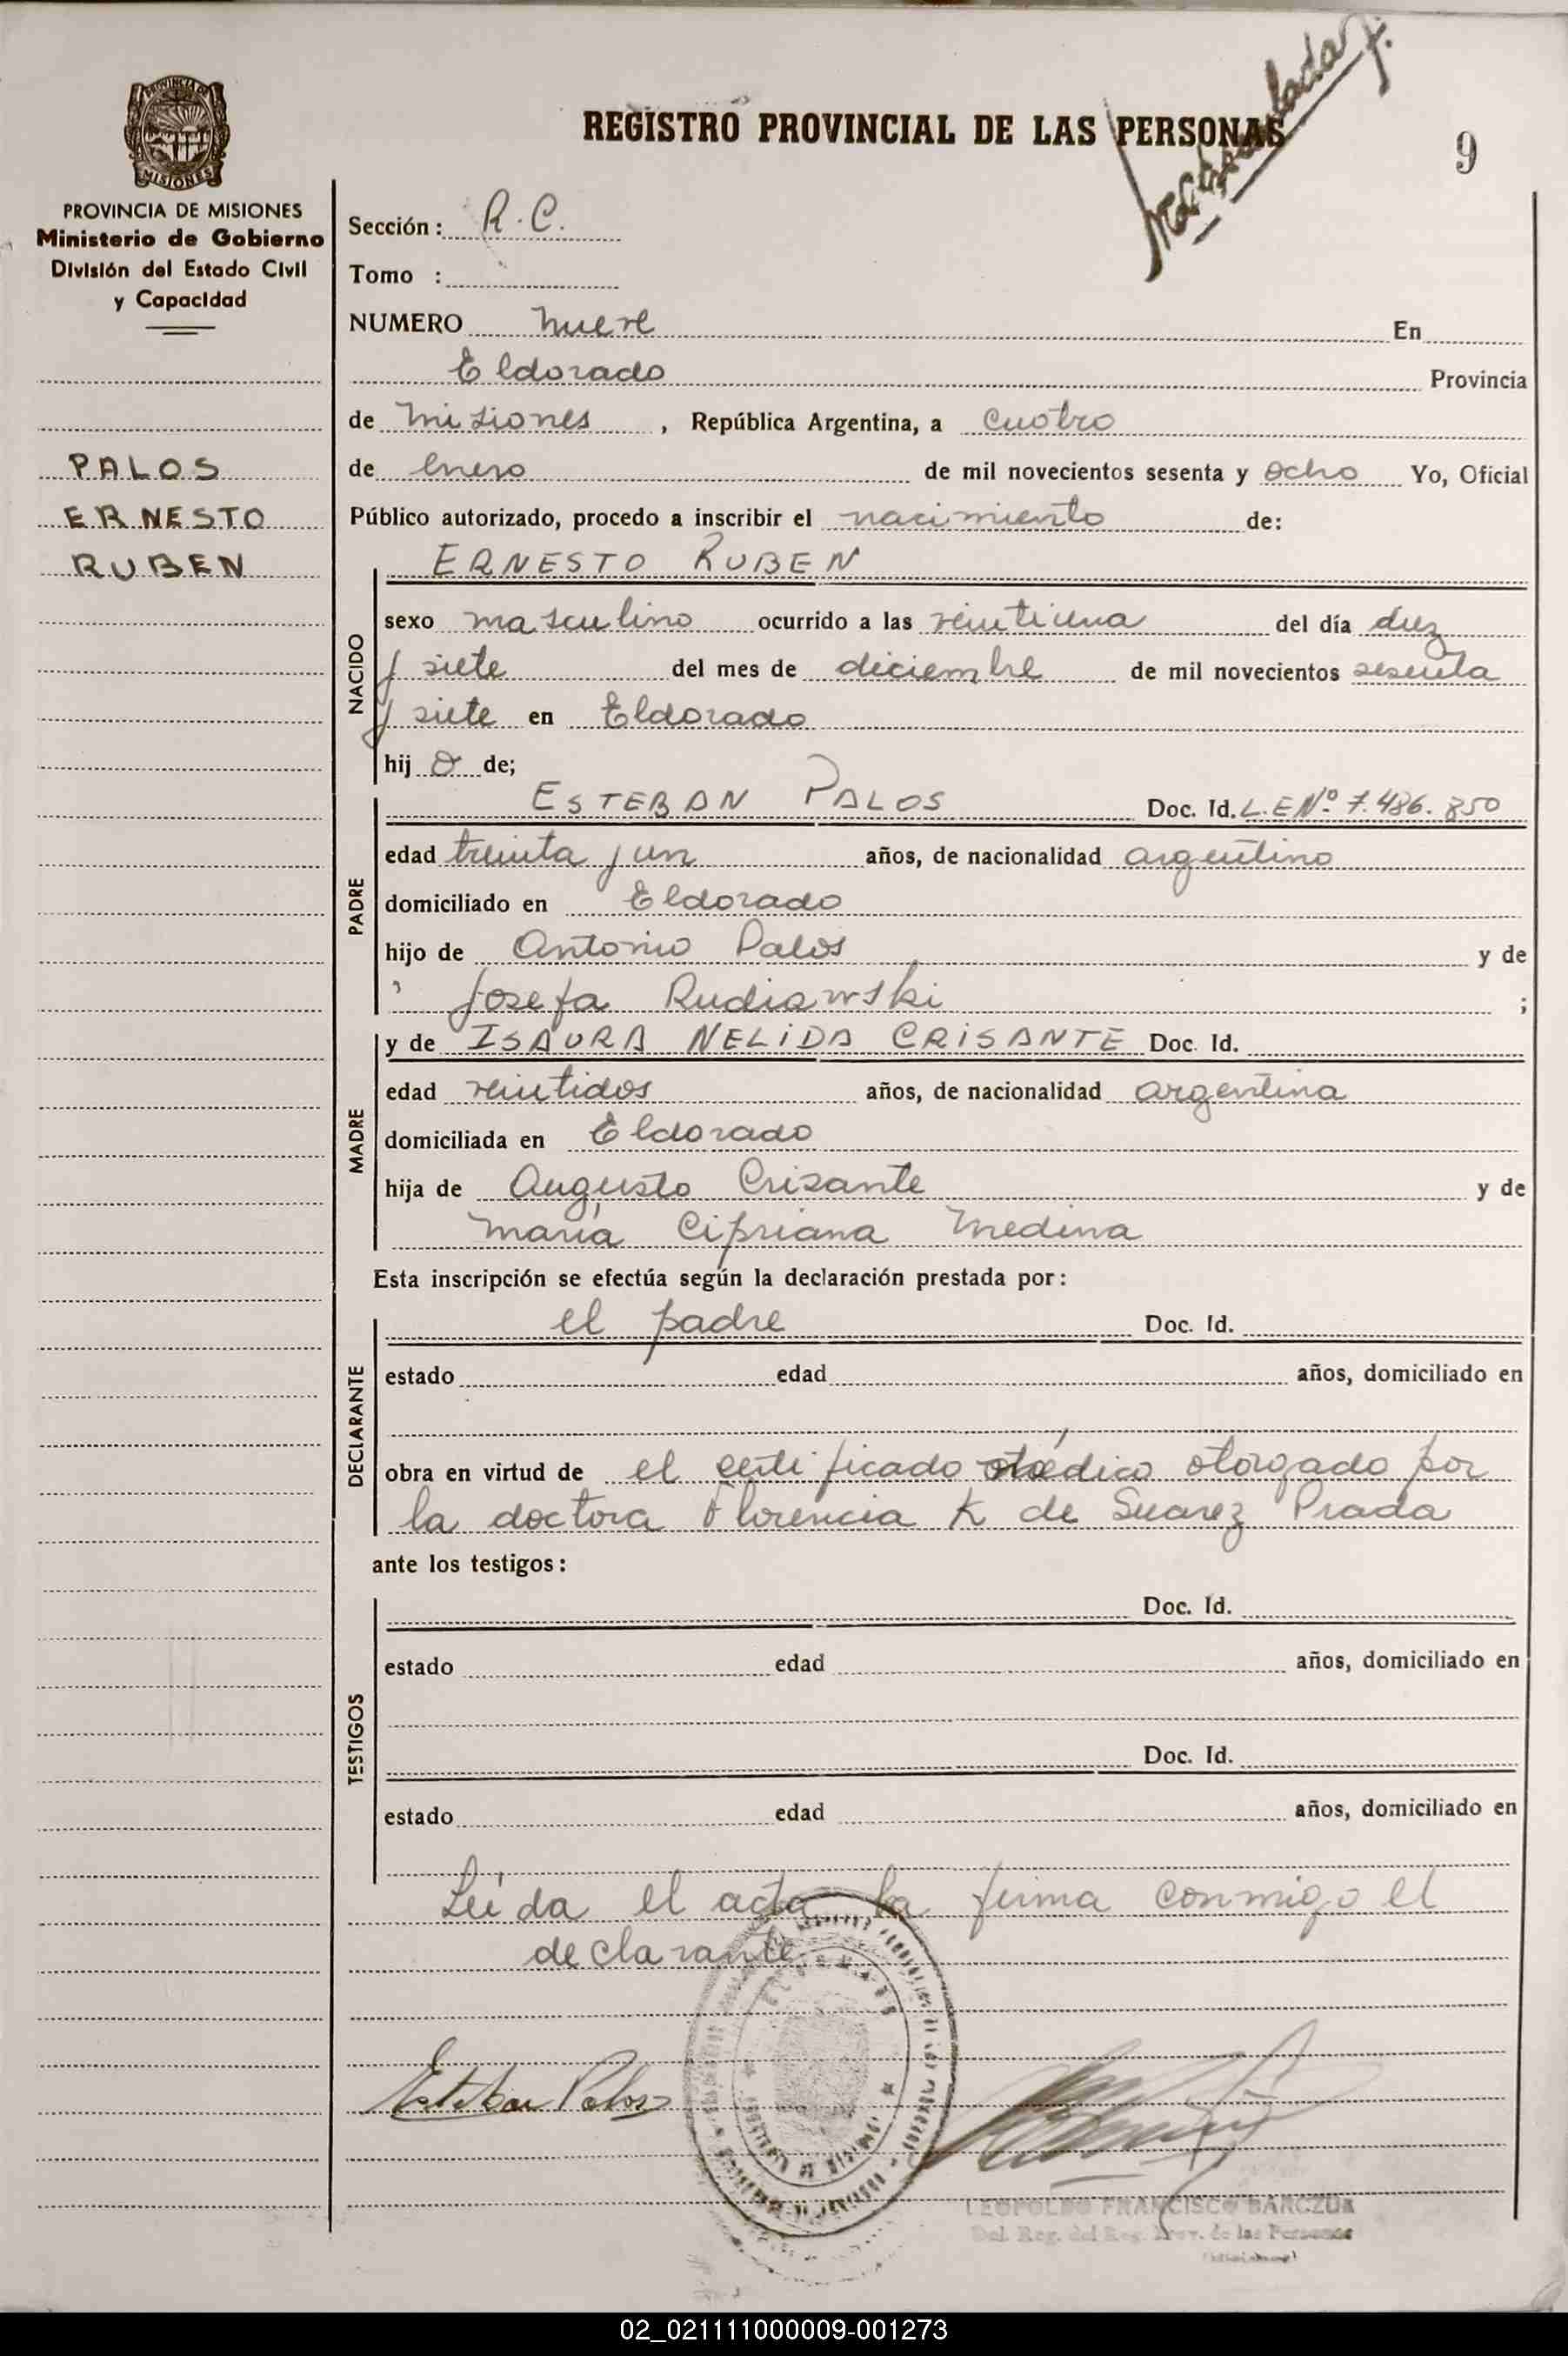 REGISTRO PROVINCIAL DE LAS PERSONAS
9
PROVINCIA DE
MISIONES
PROVINCIA DE MISIONES
Ministerio de Gobierno
División del Estado Civil
y Capacidad
PALOS
ERNESTO
RUBEN
Sección: R.C.
Tomo :
NUMERO nueve En
Eldorado Provincia
de Misiones, República Argentina, a cuatro
de enero de mil novecientos sesenta y ocho Yo, Oficial
Público autorizado, procedo a inscribir el nacimiento de:
ERNESTO RUBEN
NACIDO
sexo masculino ocurrido a las veintiuna del día diez
y siete del mes de diciembre de mil novecientos sesenta
y siete en Eldorado
hijo de;
PADRE
ESTEBAN PALOS Doc. Id. L.E Nº 7.486.850
edad treinta y un años, de nacionalidad argentino
domiciliado en Eldorado
hijo de Antonio Palos y de
Josefa Rudiawski ;
MADRE
y de ISAURA NELIDA CRISANTE Doc. Id.
edad veintidos años, de nacionalidad argentina
domiciliada en Eldorado
hija de Augusto Crisante y de
María Cipriana Medina
Esta inscripción se efectúa según la declaración prestada por:
DECLARANTE
el padre Doc. Id.
estado edad años, domiciliado en
obra en virtud de el certificado médico otorgado por
la doctora Florencia K de Suarez Prada
ante los testigos:
TESTIGOS
Doc. Id.
estado edad años, domiciliado en
Doc. Id.
estado edad años, domiciliado en
Leída el acta la firma conmigo el
declarante
Esteban Palos
LEOPOLDO FRANCISCO BARCZUK
Del. Reg. del Reg. Prov. de las Personas
02_021111000009-001273